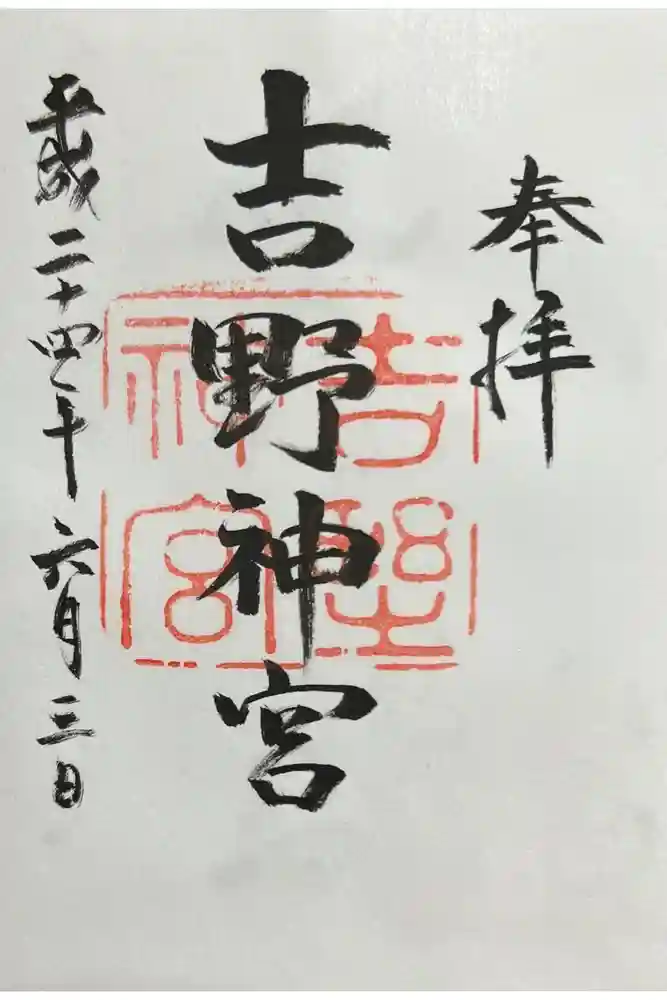 奉拝
吉野神宮
吉野神宮
平成二十四年六月三日